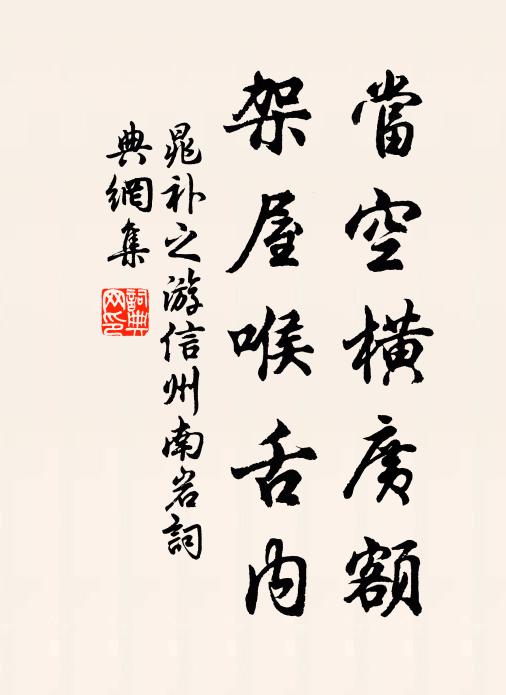 當空橫廣額
架屋喉舌內
晁补之游信州南岩詞
典網集
詞典
网印